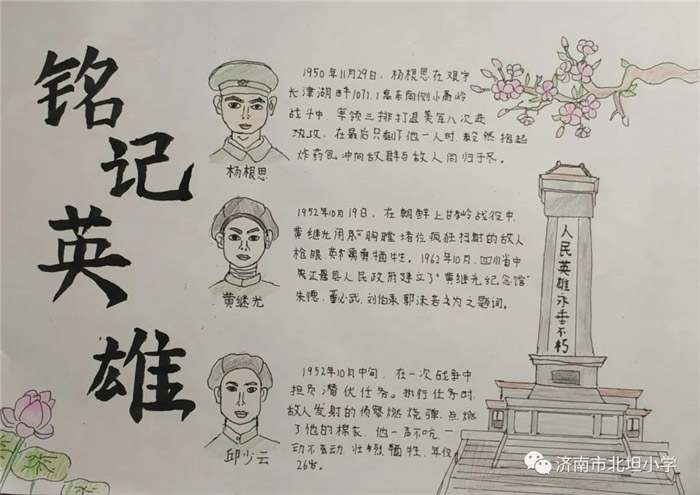 铭记英雄
1950年11月29日，杨根思在艰守
长津湖畔1071.1高东南侧小高岭
战斗中，率领三排打退美军八次进
攻，在最后只剩下他一人时，毅然抱起
炸药包冲向敌群与敌人同归于尽。
杨根思
1952年10月19日，在朝鲜上甘岭战役中，
黄继光用胸膛堵住疯狂扫射的敌人
枪眼，英勇牺牲。1962年10月，四川省中
江县人民政府建立了"黄继光纪念馆"
朱德、董必武、刘伯承、郭沫若为之题词。
黄继光
1952年10月中旬，在一次战争中
担负潜伏任务。执行任务时，
敌人发射的侦察燃烧弹，点燃
了他的棉衣，他一声不吭，一
动不动，壮烈牺牲，年仅
26岁。
邱少云
人民英雄永垂不朽
济南市北坦小学